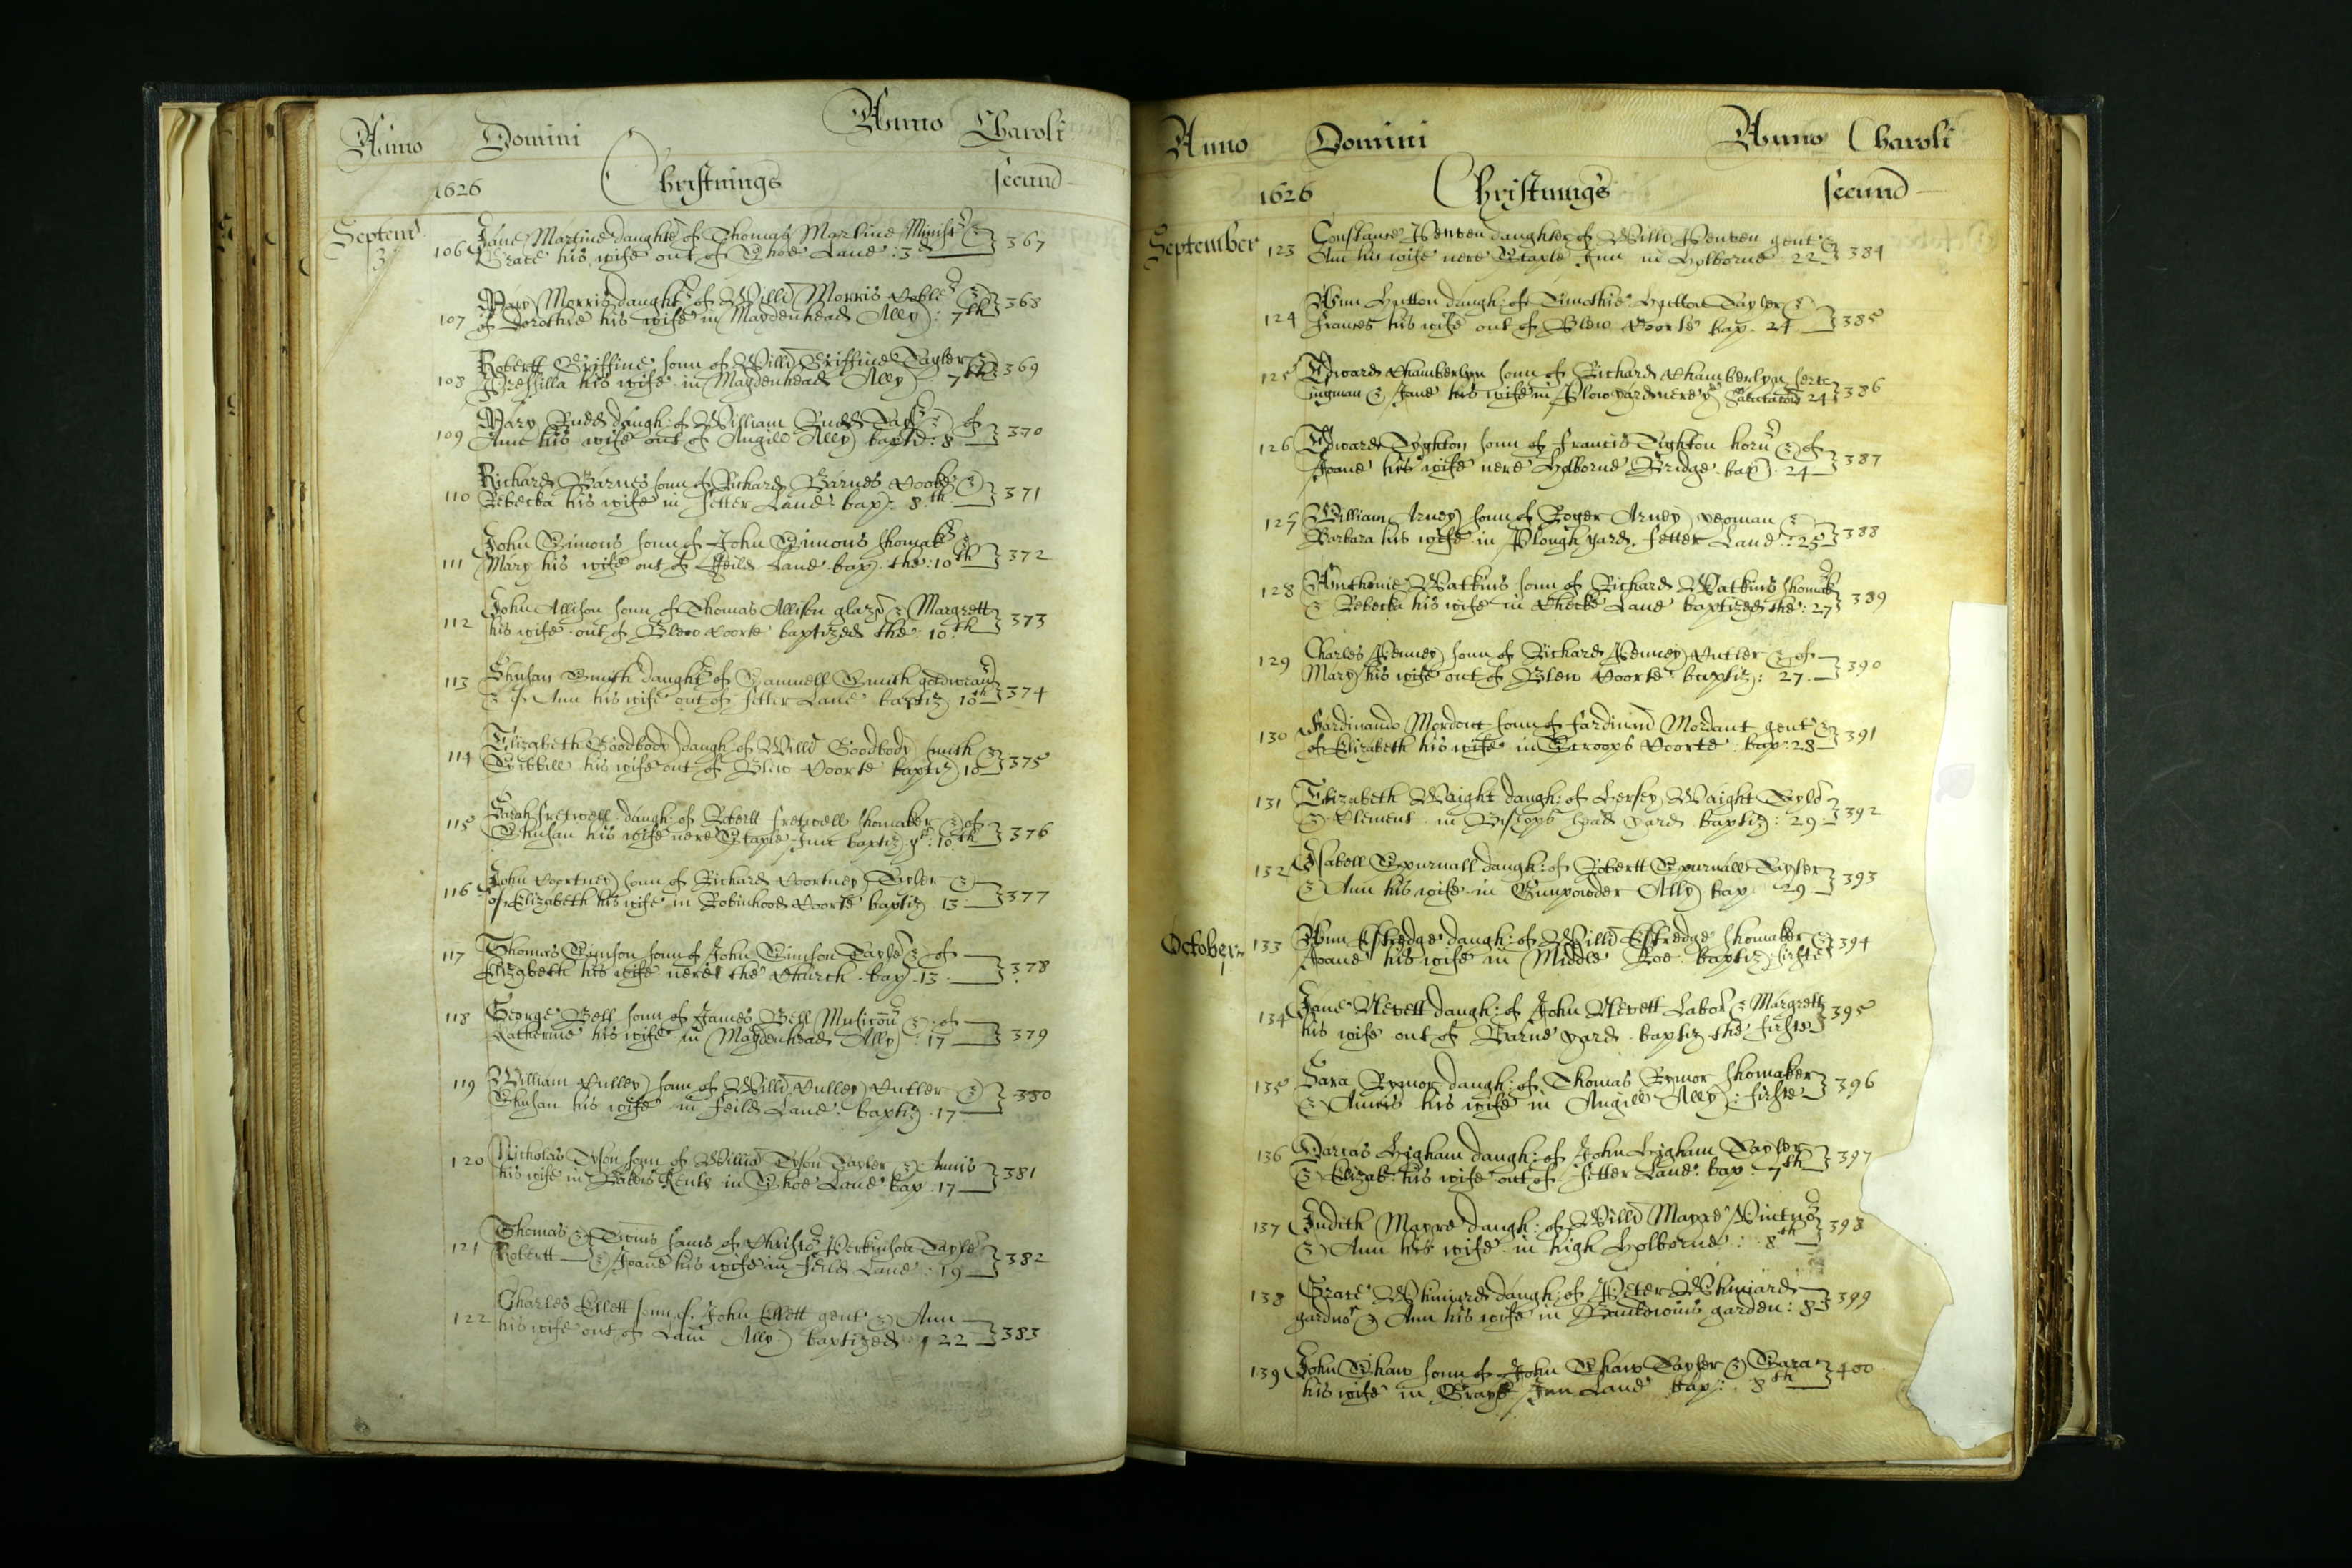 Anno Domini Anno Charoli
1626 Christnings secund
Septem
3
106 Jane Martine daughter of Thomas Martine Minist &
Grace his wife out of Shoe Lane : 3 367
107 Mary Morris daught of Willm Morris
of Dorothie his wife in Maydenhead Ally : 7th 368
108 Robertt Griffine sonn of Willm Griffine Tayler &
his wife in Maydenhead Ally 7th 369
109 Mary Rudd daugh: of William Rudd Tayl & of
Ann his wife out of Angill Ally baptiz: 8 370
110 Richard Barnes sonn of Richard Barnes Cooke &
Rebecka his wife in fetter Lane bap: 8th 371
111 John Simons sonn of John Simons shomak &
Mary his wife out of Feild Lane bap the: 10th 372
112 John Allison sonn of Thomas Allison glazr & Margrett
his wife out of Blew Coorte baptized the: 10th 373
113 Shusan Smith daught of Samuell Smith
& of Ann his wife out of fetter Lane baptiz 10th 374
114 Elizabeth Goodbody daugh: of Willm Goodbody smith &
Sibbill his wife out of Blew Coorte baptiz 10 375
115 Sarah fretwell daugh: of Robertt fretwell shomaker & of
Shusan his wife nere Staple Inn baptiz ye: 10th 376
116 John Coortney sonn of Richard Coortney Tayler &
of Elizabeth his wife in Robinhood Coorte baptiz 13 377
117 Thomas Simson sonn of John Simson Tayler & of
Elizabeth his wife nere the Church bap 13 378
118 George Bell sonn of James Bell Musicon & of
Katherine his wife in Maydenhead Ally : 17 379
119 William Culley sonn of Willm Culley Cutler &
Shusan his wife in feild Lane: baptiz 17 380
120 Nicholas Tyson sonn of Willm Tyson Tayler & Annis
his wife in Bakers Rents in Shoe Lane bap 17 381
121 Thomas & Twins sonns of Christo Perkinson Tayler
Robertt & Joane his wife in feild Lane : 19 382
122 Charles Ellett sonn of John Ellett gent & Ann
his wife out of Lam Ally baptized 22 383
Anno Domini Anno Charoli
1626 Christnings secund
September 123 Constance daughter of Willm gent &
Ann his wife nere Staple Inn in Holborne 22 384
124 Ann Hutton daugh: of Timothie Hutton Tayler &
frances his wife out of Blew Coorte bap 24 385
125 Edward Chamberlyn sonn of Richard Chamberlyn serv
ingman & Jane his wife in Plow yard nere ye 24 386
126 Edward Tyghton sonn of francis Tighton & of
Joane his wife nere Holborne Bridge bap 24 387
127 William Arney sonn of Roger Arney yeoman &
Barbara his wife in Plough yard fetter Lane : 25 388
128 Anthonie Watkins sonn of Richard Watkins shomak
& Rebecka his wife in Checkr Lane baptized the: 27 389
129 Charles Penney sonn of Richard Penney Cutler & of
Mary his wife out of Blew Coorte baptiz: 27 390
130 fardinando Mordant sonn of fardinand Mordant gent &
of Elizabeth his wife in Stroops Coorte bap: 28 391
131 Elizabeth Waight daugh: of Hersey Waight
& Clement in Biscops head yard baptiz: 29 392
132 Isabell Spurnall daugh: of Robertt Spurnall Tayler
& Ann his wife in Gunpowder Ally bap 29 393
October
1 133 Ann Eskredge daugh: of Willm Eskredge shomaker &
Joane his wife in Middle Roe baptiz: firste 394
134 Jane Nevett daugh: of John Nevett Labor & Margrett
his wife out of Barne yard baptiz the firste 395
135 Sara Rymor daugh: of Thomas Rymor shomaker
& Annis his wife in Angill Ally: firste 396
136 Darcas Higham daugh: of John Higham Tayler
& Elizab: his wife out of fetter Lane: bap 7th 397
137 Judith Mayre daugh: of Willm Mayre Vintnr
& Ann his wife in high Holborne: 8th 398
138 Grace Whiniard daugh: of Peter Whiniard
gardnr & Ann his wife in garden: 8 399
139 John Shaw sonn of John Shaw Tayler & Sara
his wife in Grayes Inn Lane bap: 8th 400